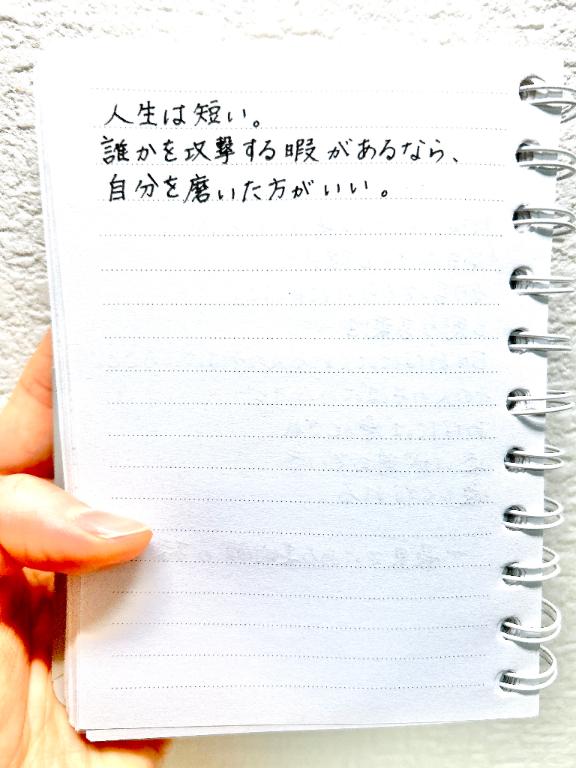 人生は短い。
誰かを攻撃する暇があるなら、
自分を磨いた方がいい。